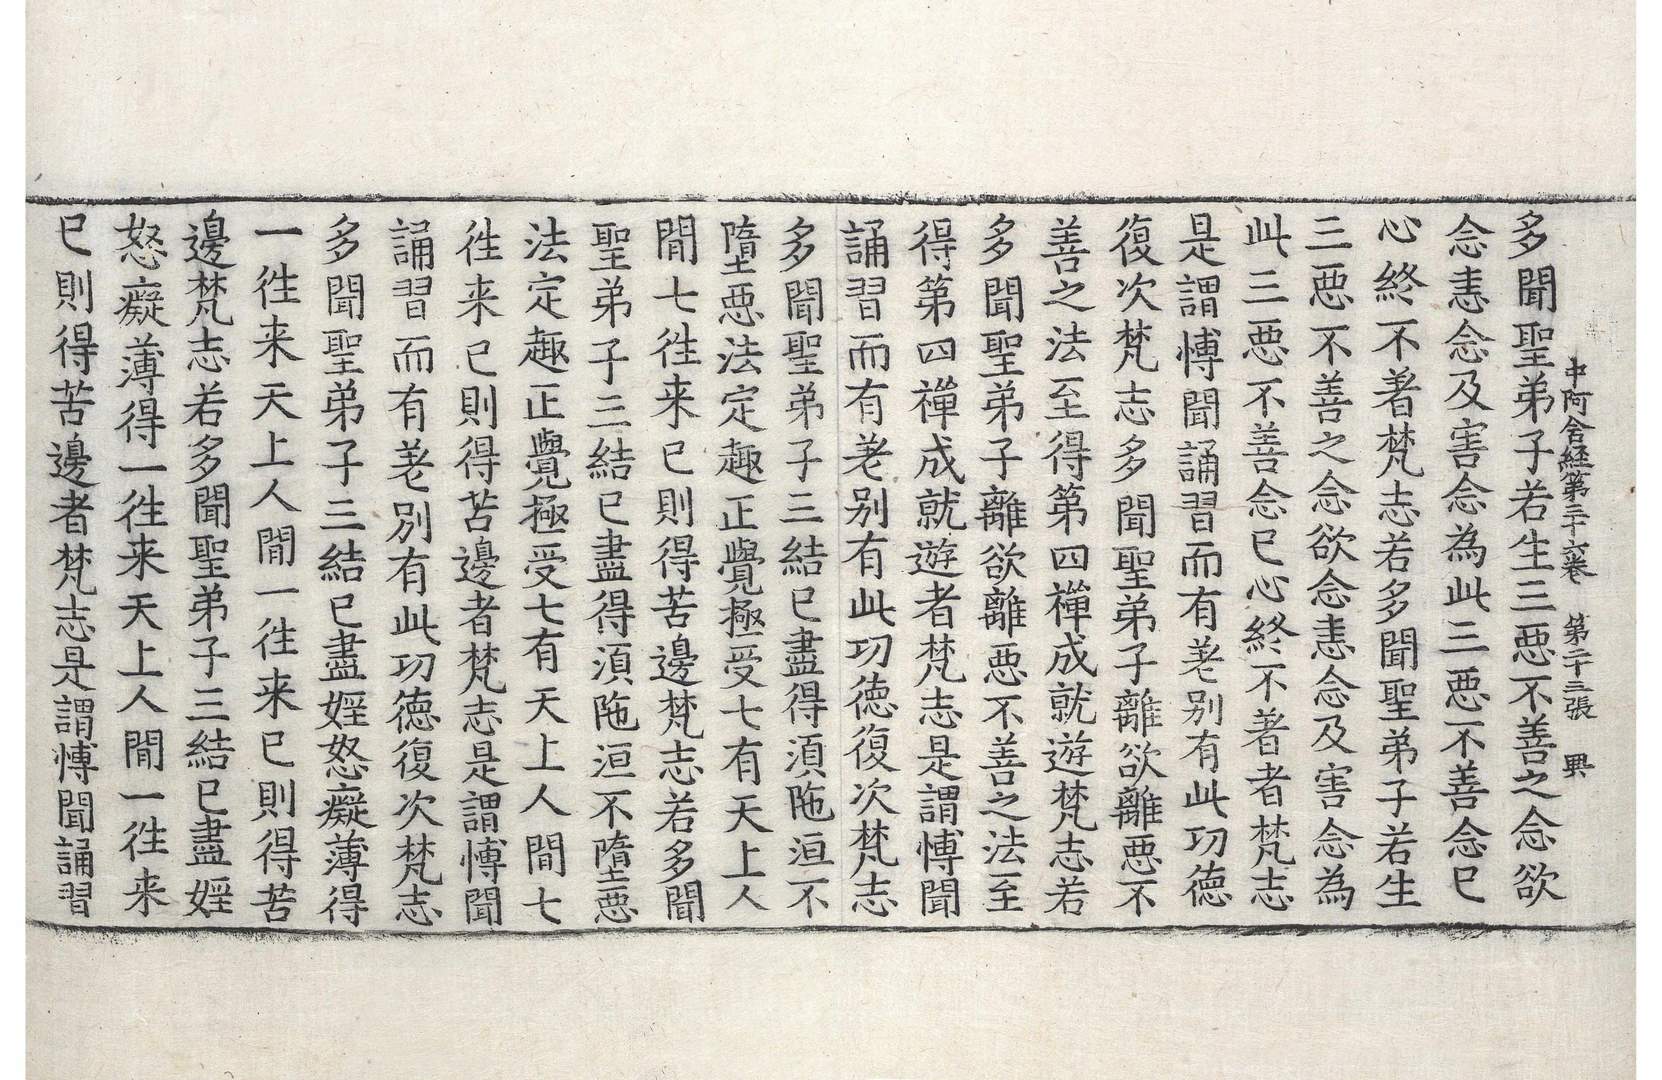 中阿含経第三十六卷　第二十三張　興
多聞聖弟子若生三惡不善之念欲
念恚念及害念為此三惡不善念已
心終不著梵志若多聞聖弟子若生
三惡不善之念欲念恚念及害念為
此三惡不善念已心終不著者梵志
是謂博聞誦習而有差別有此功德
復次梵志多聞聖弟子離欲離惡不
善之法至得第四禪成就遊梵志若
多聞聖弟子離欲離惡不善之法至
得第四禪成就遊者梵志是謂博聞
誦習而有差别有此功德復次梵志
多聞聖弟子三結已盡得須陁洹不
墮惡法定趣正覺極受七有天上人
間七往来已則得苦邊梵志若多聞
聖弟子三結已盡得須陁洹不墮惡
法定趣正覺極受七有天上人間七
往来已則得苦邊者梵志是謂博聞
誦習而有差別有此功德復次梵志
多聞聖弟子三結已盡婬怒癡薄得
一往来天上人間一往来已則得苦
邊梵志若多聞聖弟子三結已盡婬
怒癡薄得一往来天上人間一往来
已則得苦邊者梵志是謂博聞誦習